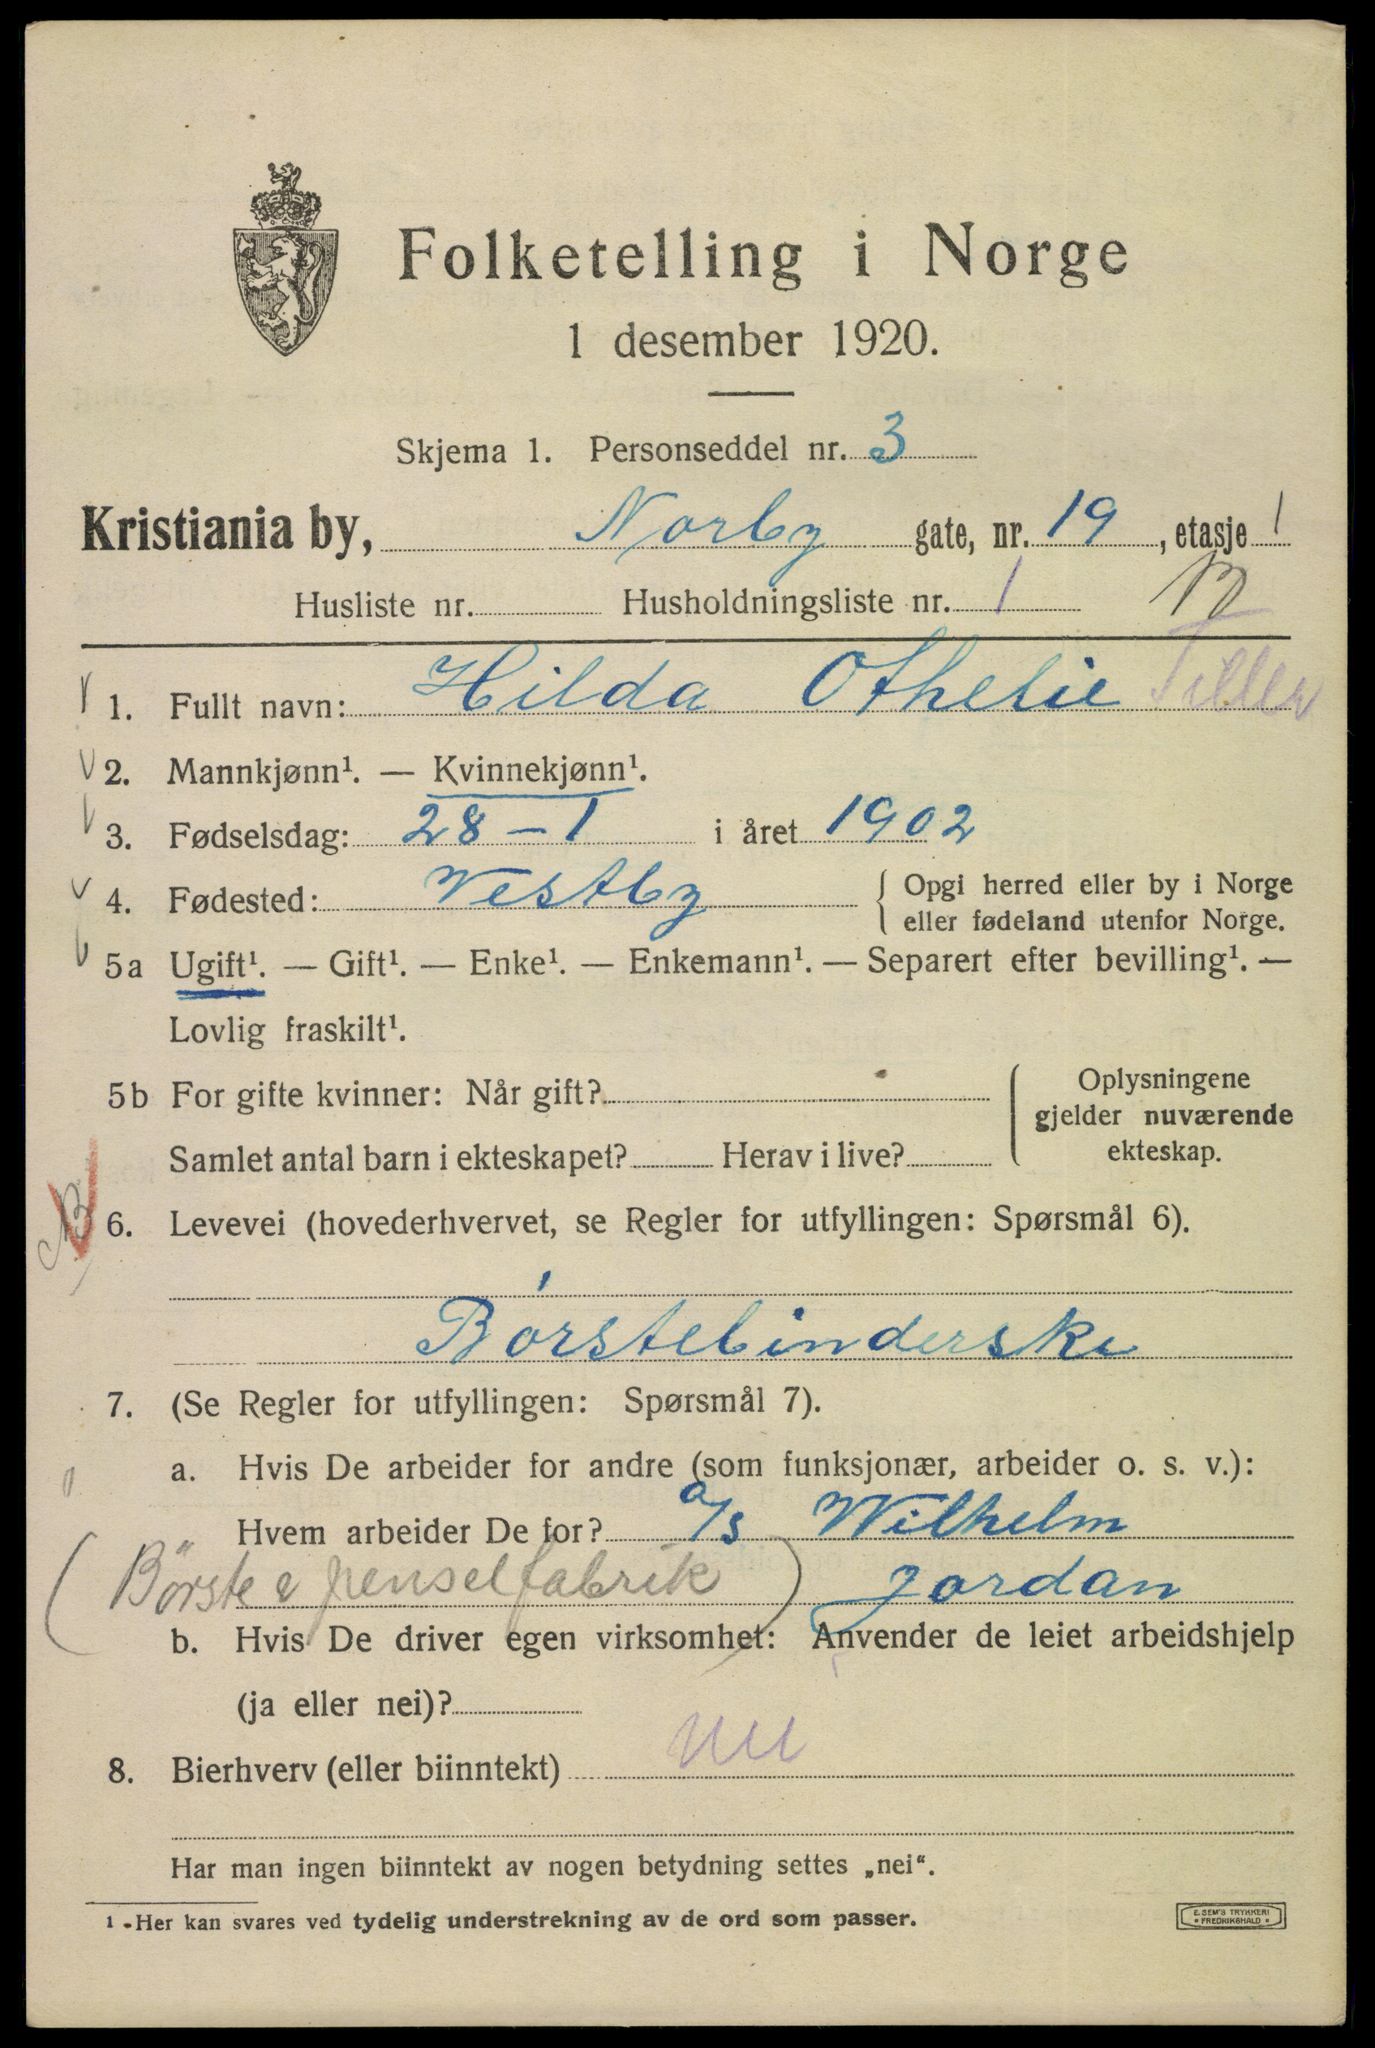 Folketelling i Norge
1 desember 1920.
Skjema 1. Personseddel nr. 3
Kristiania by, Norby gate, nr. 19, etasje 1
Husliste nr. Husholdningsliste nr. 1
1. Fullt navn: Hilda Othelie Tiller
2. Mannkjønn¹. — Kvinnekjønn¹.
3. Fødselsdag: 28 – 1 i året 1902
4. Fødested: Vestby { Opgi herred eller by i Norge
eller fødeland utenfor Norge.
5a Ugift¹. — Gift¹. — Enke¹. — Enkemann¹. — Separert efter bevilling¹. —
Lovlig fraskilt¹.
5b For gifte kvinner: Når gift?
Samlet antal barn i ekteskapet? Herav i live?
Oplysningene
gjelder nuværende
ekteskap.
6. Levevei (hovederhvervet, se Regler for utfyllingen: Spørsmål 6).
Børstebinderske
7. (Se Regler for utfyllingen: Spørsmål 7).
a. Hvis De arbeider for andre (som funksjonær, arbeider o. s. v.):
Hvem arbeider De for? a/s Wilhelm
(Børste & penselfabrik) Jordan
b. Hvis De driver egen virksomhet: Anvender de leiet arbeidshjelp
(ja eller nei)?
8. Bierhverv (eller biinntekt) nei
Har man ingen biinntekt av nogen betydning settes „nei“.
¹ Her kan svares ved tydelig understrekning av de ord som passer.
E. SEM'S TRYKKERI
FREDRIKSHALD